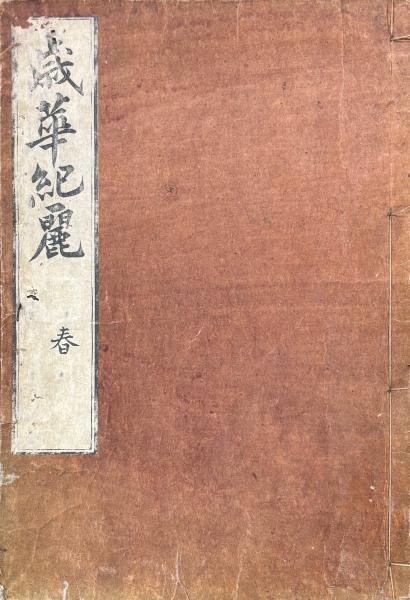 歳華紀麗
春